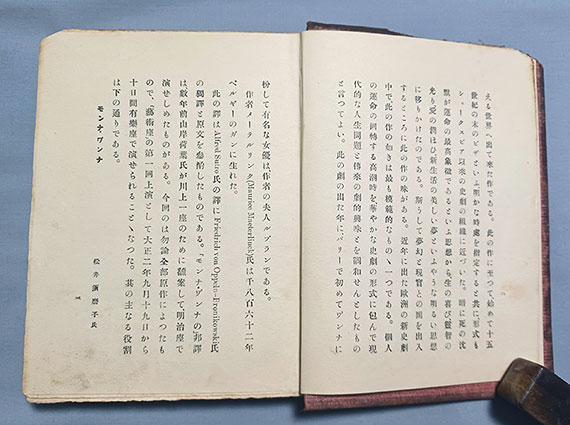 える世界へ出て來た作である。此の作に至つて、始めて十五
世紀の末のピザといふ明かな時處を指定すると共に、形式も
シェークスピア以來の史劇の組織に近づいた。暗に死の沈
默が運命の最高象徴であるといふ思想から、生の喜び靈智の
光り愛の潤ひの新生活を美しい夢といふやうな明るい思想
に移りかけたのである。斯うして夢幻と現實との間を出入
するところに此の作の味がある。近年に出た歐洲の新史劇
中で此の作の如きは最も模範的なものゝ一つである。個人
の運命の回轉する高潮時を華やかな史劇の形式に包んで現
代的な人生問題と傳來の劇的興味とを調和せんとしたもの
と言つてよい。此の劇の出た年に、パリーで初めてヴンナに
扮して有名な女優は作者の夫人ルブランである。
作者メーテルリンク(Maurice Maeterlinck)氏は千八百六十二年
ベルギーのガンに生れた。
此の譯は Alfred Sutro 氏の譯に Friedrich von Oppeln-Bronikowski氏
の獨譯と原文を參酌したものである。『モンナヴンナの邦譯
は數年前山岸荷葉氏が川上一座のために翻案して明治座で
演ぜしめたものがある。今回のは勿論全部原作によつたも
ので、「藝術座の第一回上演として大正二年九月十九日から
十日間有樂座で演ぜられることゝなつた。其の主なる役割
は下の通りである。
モンナヴンナ
松井須磨子氏